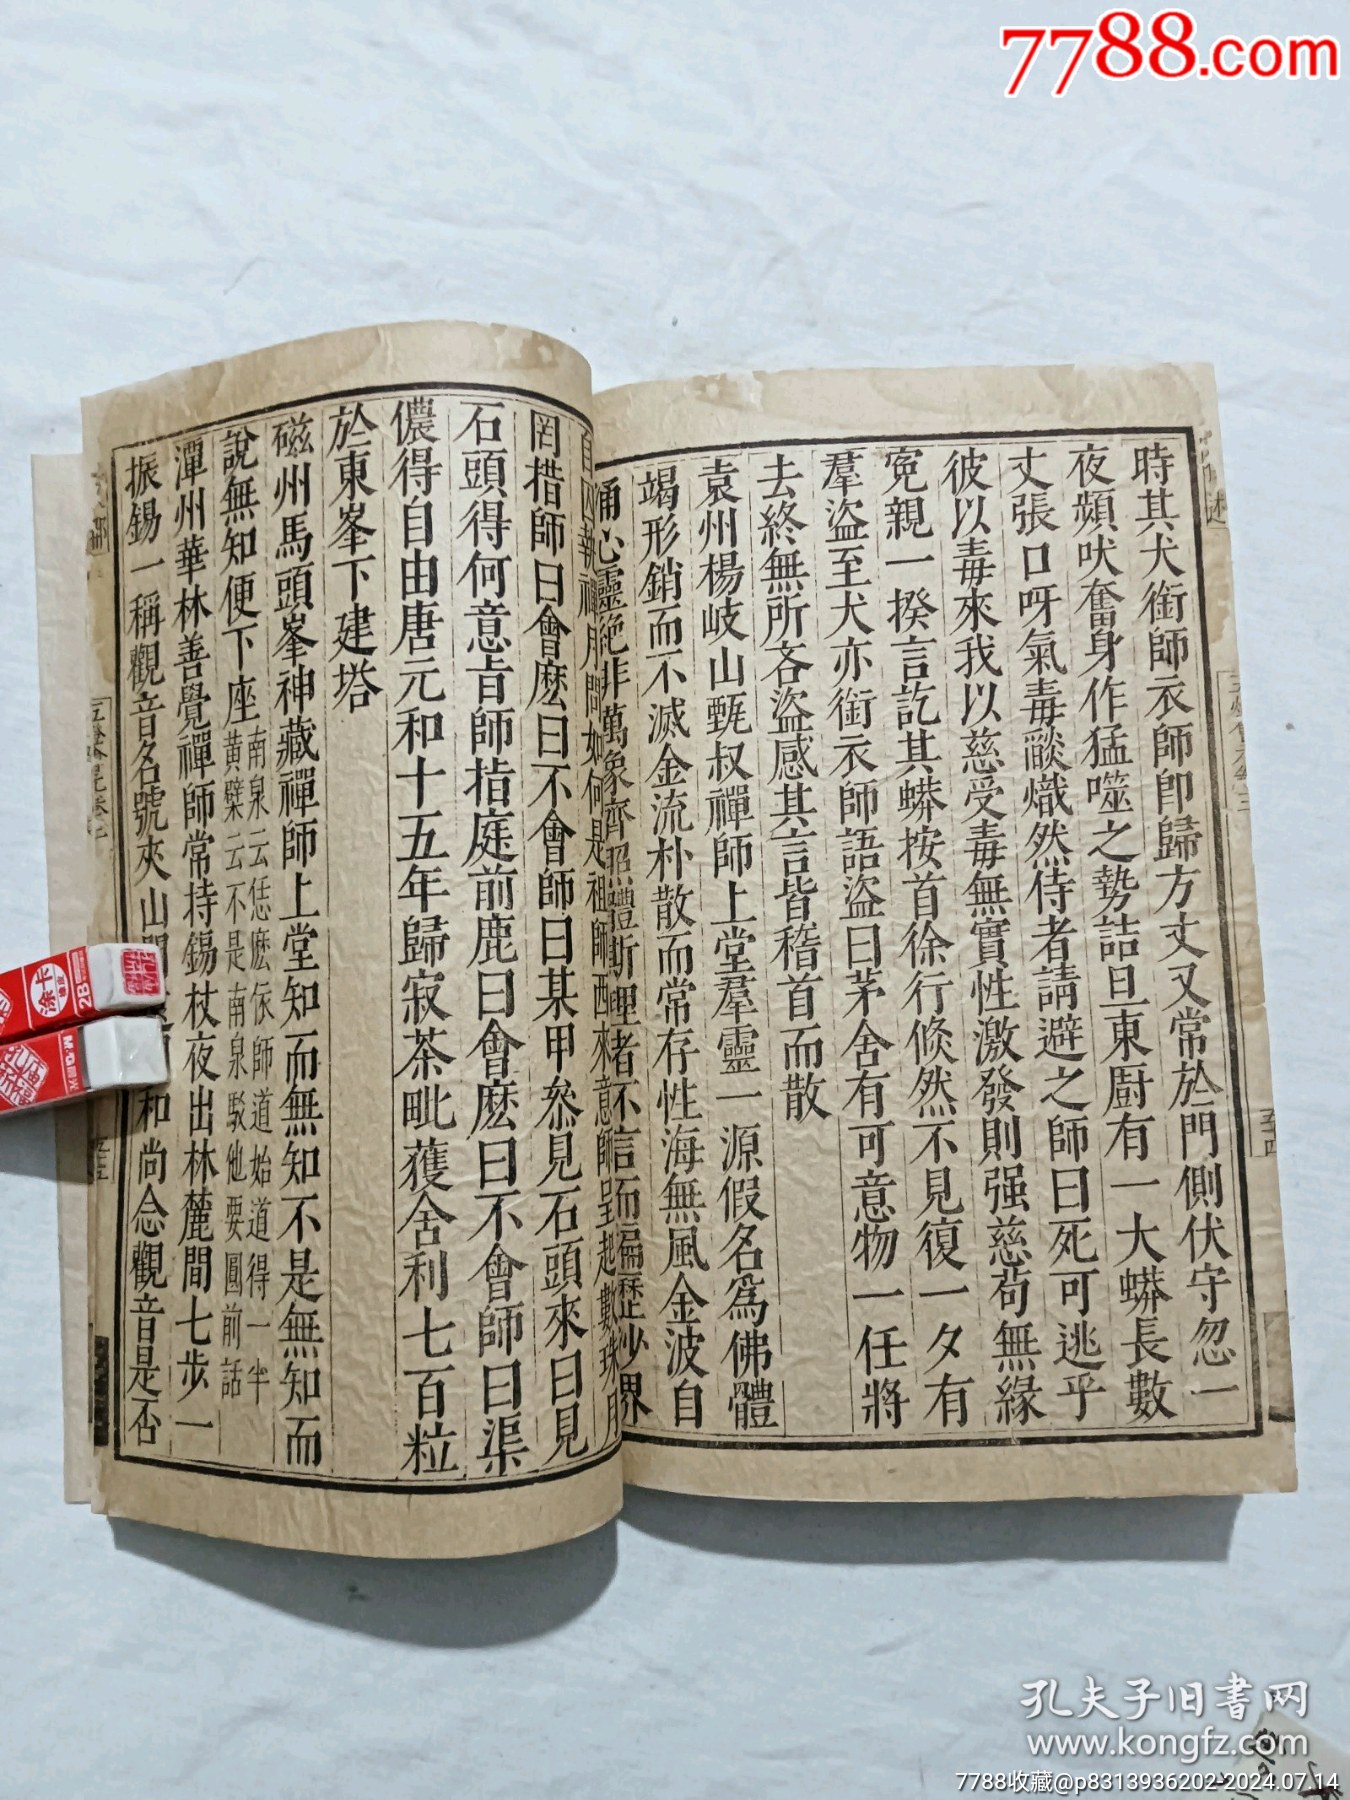 7788.com
時其犬銜師衣師卽歸方丈又常於門側伏守忽一
夜頻吠奮身作猛噬之勢詰旦東廚有一大蟒長數
丈張口呀氣毒燄熾然侍者請避之師曰死可逃乎
彼以毒來我以慈受毒無實性激發則强慈苟無緣
寃親一揆言訖其蟒按首徐行倐然不見復一夕有
羣盜至犬亦銜衣師語盜曰茅舍有可意物一任將
去終無所吝盜感其言皆稽首而散
袁州楊岐山甄叔禪師上堂羣靈一源假名爲佛體
竭形銷而不滅金流朴散而常存性海無風金波自
涌心靈絕非萬象齊照體斯理者不言而徧歷沙界
自因執禪月問如何是祖師西來意師呈起數珠月
罔措師曰會麽曰不會師曰某甲叅見石頭來曰見
石頭得何意旨師指庭前鹿曰會麽曰不會師曰渠
儂得自由唐元和十五年歸寂茶毗獲舍利七百粒
於東峯下建塔
磁州馬頭峯神藏禪師上堂知而無知不是無知而
說無知便下座
南泉云恁麽依師道始道得一半
黃檗云不是南泉駁他要圓前話
潭州華林善覺禪師常持錫杖夜出林麓間七步一
振錫一稱觀音名號夾山 和尚念觀音是否
孔夫子旧书网
www.kongfz.com
7788收藏@p8313936202-2024.07.14